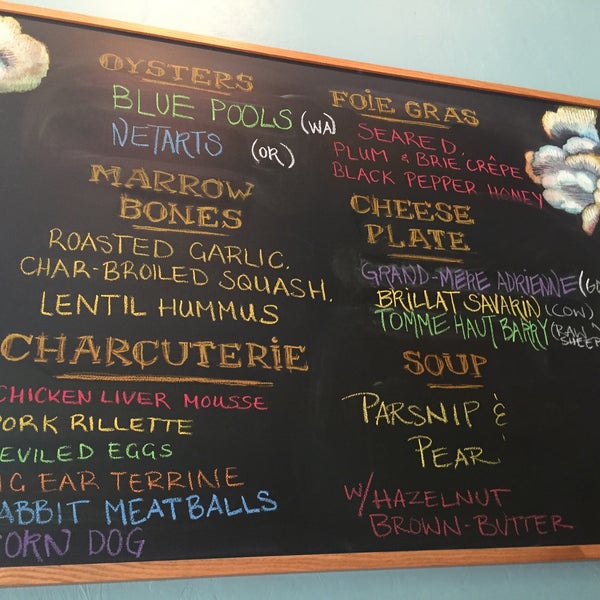 OYSTERS
BLUE POOLS (WA)
NETARTS (OR)
MARROW
BONES
ROASTED GARLIC.
CHAR-BROILED SQUASH.
LENTIL HUMMUS
CHARCUTERIE
CHICKEN LIVER MOUSSE
PORK RILLETTE
EVILED EGGS
IG EAR TERRINE
ABBIT MEATBALLS
ORN DOG
FOIE GRAS
SEARED.
PLUM & BRIE CRÊPE
BLACK PEPPER HONEY
CHEESE
PLATE
GRAND-MÈRE ADRIENNE (GO
BRILLAT SAVARIN (COW)
TOMME HAUT BARRY (RAW SHEEP
SOUP
PARSNIP &
PEAR
W/ HAZELNUT
BROWN-BUTTER